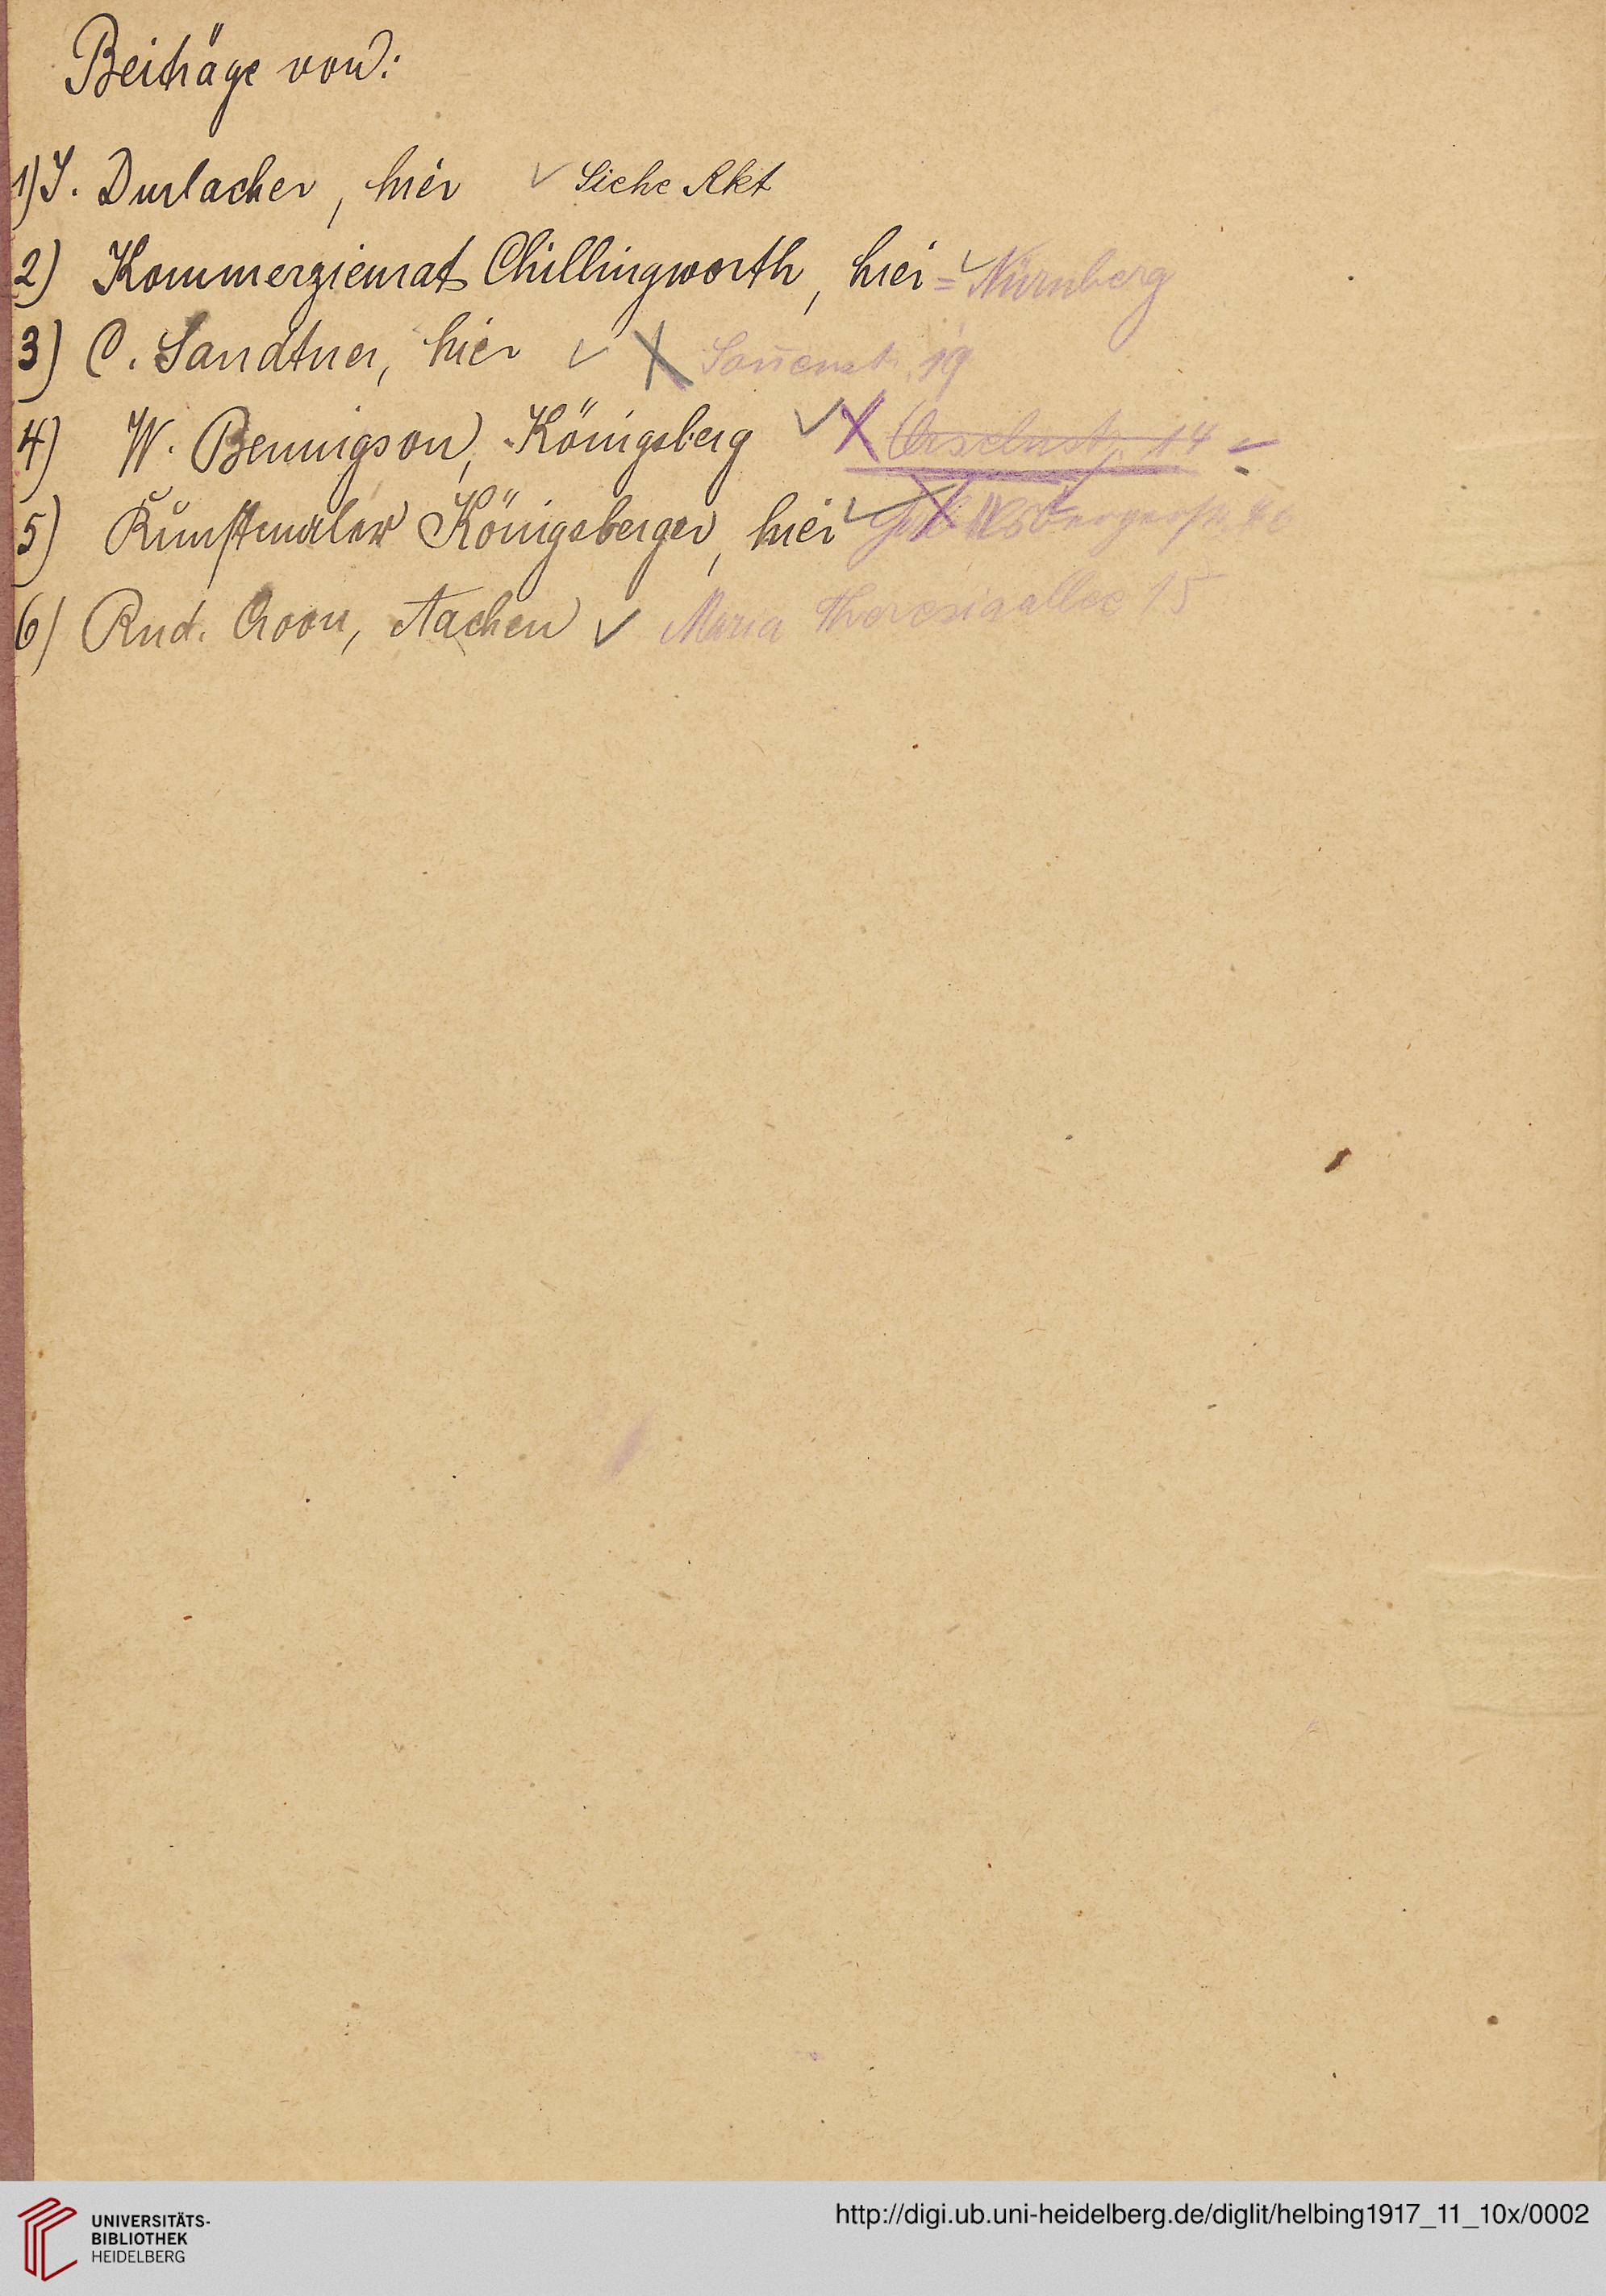 Beiträge von:
1) J. Durlacher, hier ✓ Siehe Akt
2) Kommerzienrat Chillingworth, hier = ✓ Nürnberg
3) C. Sandtner, hier ✓ X Soñenstr. 19
4) W. Bennigson, Königsberg ✓ X 14
5) Kunstmaler Königsberger, hier ✓ X
6) Rud. Croon, Aachen ✓ Maria Theresiaallee 15
UNIVERSITÄTS-
BIBLIOTHEK
HEIDELBERG
http://digi.ub.uni-heidelberg.de/diglit/helbing1917_11_10x/0002